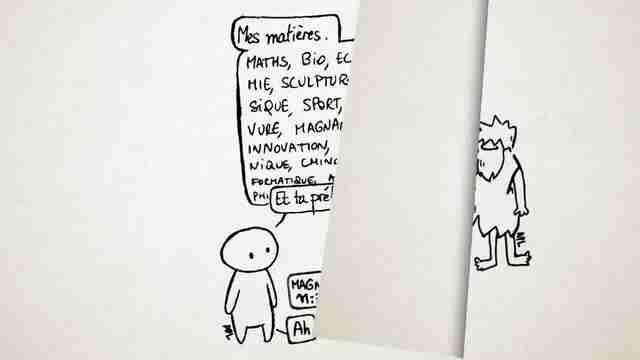 Mes matières.
MATHS, BIO, EC
MIE, SCULPTUR
SIQUE, SPORT,
VURE, MAGNA
INNOVATION,
NIQUE, CHINO
FORMATIQUE,
PHI
Et ta pré
MAGN
Ah